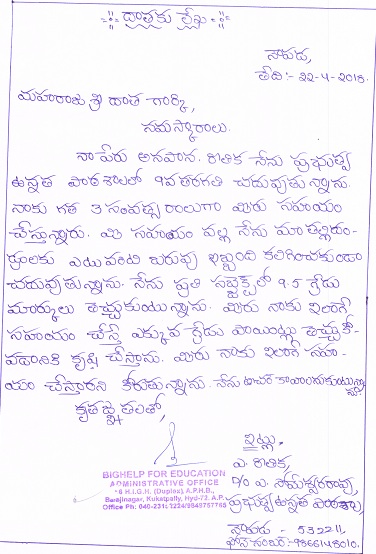 దాతకు లేఖ
సాపడు,
తేది:- 22-4-2018.
మహారాజ శ్రీ దాత గార్కి,
నమస్కారాలు.
నా పేరు అనపాన. రాతిక నేను ప్రభుత్వ
ఉన్నత పాఠశాలలో 9వ తరగతి చదువుతున్నాను.
నాకు గత 3 సంవత్సరాలుగా మీరు సహాయం
చేస్తున్నారు. మీ సహాయం వల్ల నేను మా తల్లిదం-
డ్రులకు ఎటువంటి బరువు ఇబ్బంది కలిగించకుండా
చదువుతున్నాను. నేను ప్రతి సబ్జెక్ట్‌లో 9.5 గ్రేడు
మార్కులు తెచ్చుకుంటున్నాను. మీరు నాకు ఇలాగే
సహాయం చేస్తే ఎక్కువ గ్రేడు పాయింట్లు తెచ్చుకో-
వడానికి కృషి చేస్తాను. మీరు నాకు ఇలాగే సహా-
యం చేస్తారని కోరుతున్నాను. నేను టీచర్ కావాలనుకుంటున్నాను
కృతజ్ఞతలతో,
ఇట్లు,
ఎ. రాతిక,
D/o ఎ. సోమేశ్వరరావు,
ప్రభుత్వ ఉన్నత పాఠశాల
సాపడు - 532211
ఫోన్ నంబర్:- 9866148010.
BIGHELP FOR EDUCATION
ADMINISTRATIVE OFFICE
16 H.I.G.H. (Duplex), A.P.H.B.,
Balajinagar, Kukatpally, Hyd-72. A.P.
Office Ph: 040-23157224/9849757765